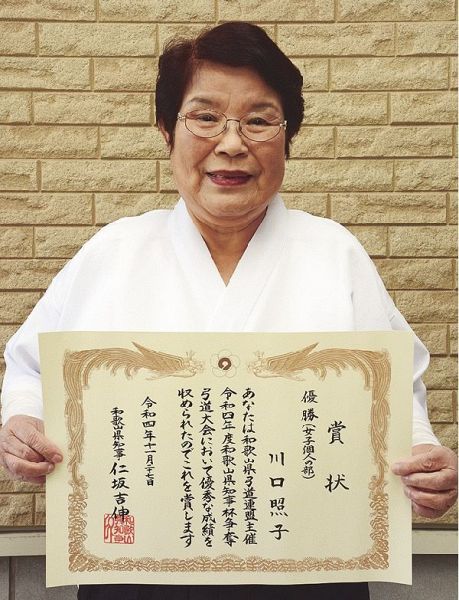 賞状
優勝(女子個人の部)
川口照子
あなたは和歌山県弓道連盟主催
令和四年度和歌山県知事杯争奪
弓道大会において優秀な成績を
収められたのでこれを賞します
令和四年十一月二十七日
和歌山県知事 仁坂吉伸